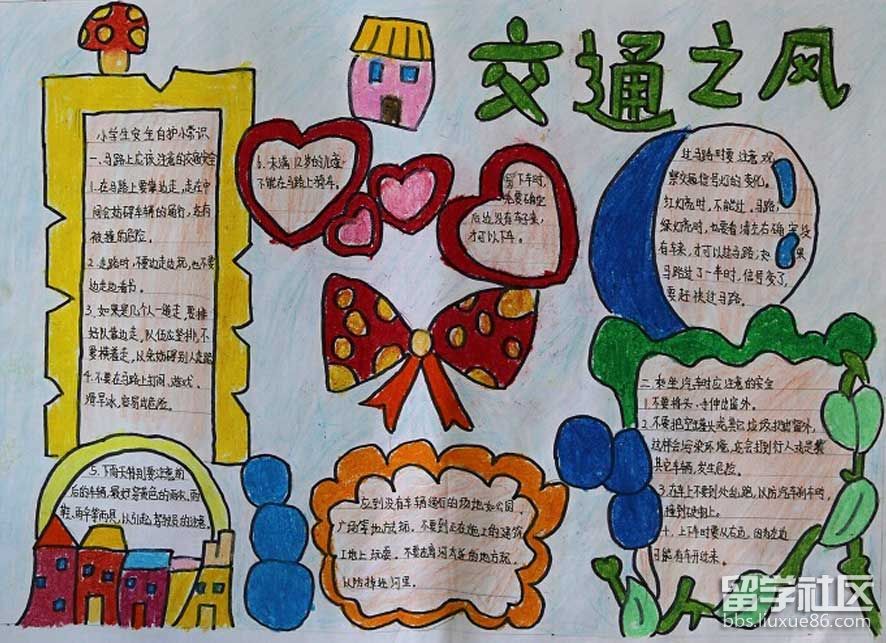 交通之风
小学生安全自护小常识
一、马路上应该注意的交通安全
1.在马路上要靠边走,走在中
间会妨碍车辆的通行,还有
被撞的危险。
2.走路时,不要边走边玩,也不要
边走边看书。
3.如果是几个人一道走,要排
好队靠边走,队伍应坚排,不
要横着走,以免妨碍别人走路
4.不要在马路上打闹、游戏、
滑旱冰,容易出危险。
5.下雨天特别要注意前
后的车辆,最好穿黄色的雨衣、雨
鞋,雨伞等雨具,以引起驾驶员的注意。
6.未满12岁的儿童
不能在马路上骑车。
下车时,
要确定
后边没有车子来,
才可以下车。
过马路时要注意观
察交通信号灯的变化。
红灯亮时,不能过马路,
绿灯亮时,也要看清左右确实没
有车来,才可以过马路,如果
马路过了一半时,信号变了,
要赶快过马路。
应到没有车辆通行的场地如公园、
广场等地方玩,不要到正在施工的建筑
工地上玩耍,不要在离河太近的地方玩,
以防掉进河里。
二、乘坐汽车时应注意的安全
1.不要将头、手伸出窗外。
2.不要把空罐头或其它垃圾扔出窗外,
这样会污染环境,还会打到行人或是砸
其它车辆,发生危险。
3.在车上不要到处乱跑,以防汽车刹车时,
撞到硬物上。
4.上下车时要从右边,因为左边
可能有车开过来。
留学社区
bbs.liuxue86.com